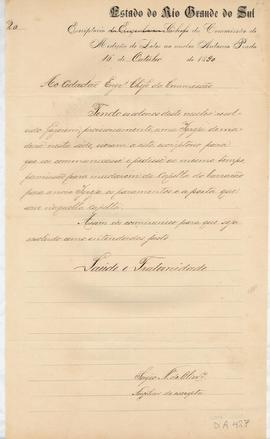 Estado do Rio Grande do Sul
20
Escriptorio do Engenheiro Subchefe da Commissão de
Medição de Lotes no nucleo Antonio Prado
16 de Outubro de 1890
Ao Cidadão Engº Chefe da Commissão
Tendo os colonos deste nucleo resol-
vido fazerem provisoriamente uma Igreja de ma-
deira nesta séde, vieram a este escriptorio para
que eu communicasse e pedisse ao mesmo tempo,
permissão para mudarem da Capella do barracão
para a nova Igreja os paramentos e a porta que
ora naquella capella.
Assim vos communico para que seja
resolvido como entenderdes justo
Saúde e Fraternidade
Auxiliar de escripta
DA 427